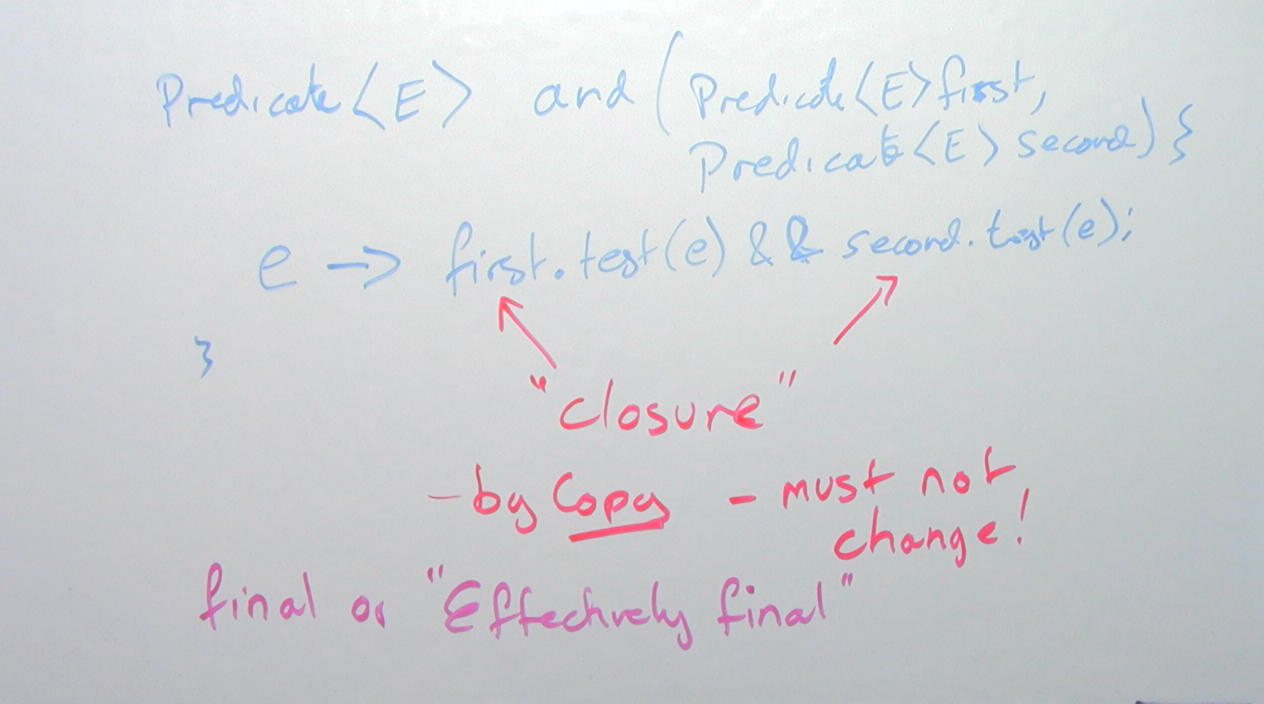 Predicate<E> and (Predicate<E> first,
Predicate<E> second) {
e -> first.test(e) && second.test(e);
}
"closure"
- by Copy - must not
change!
final or "Effectively final"